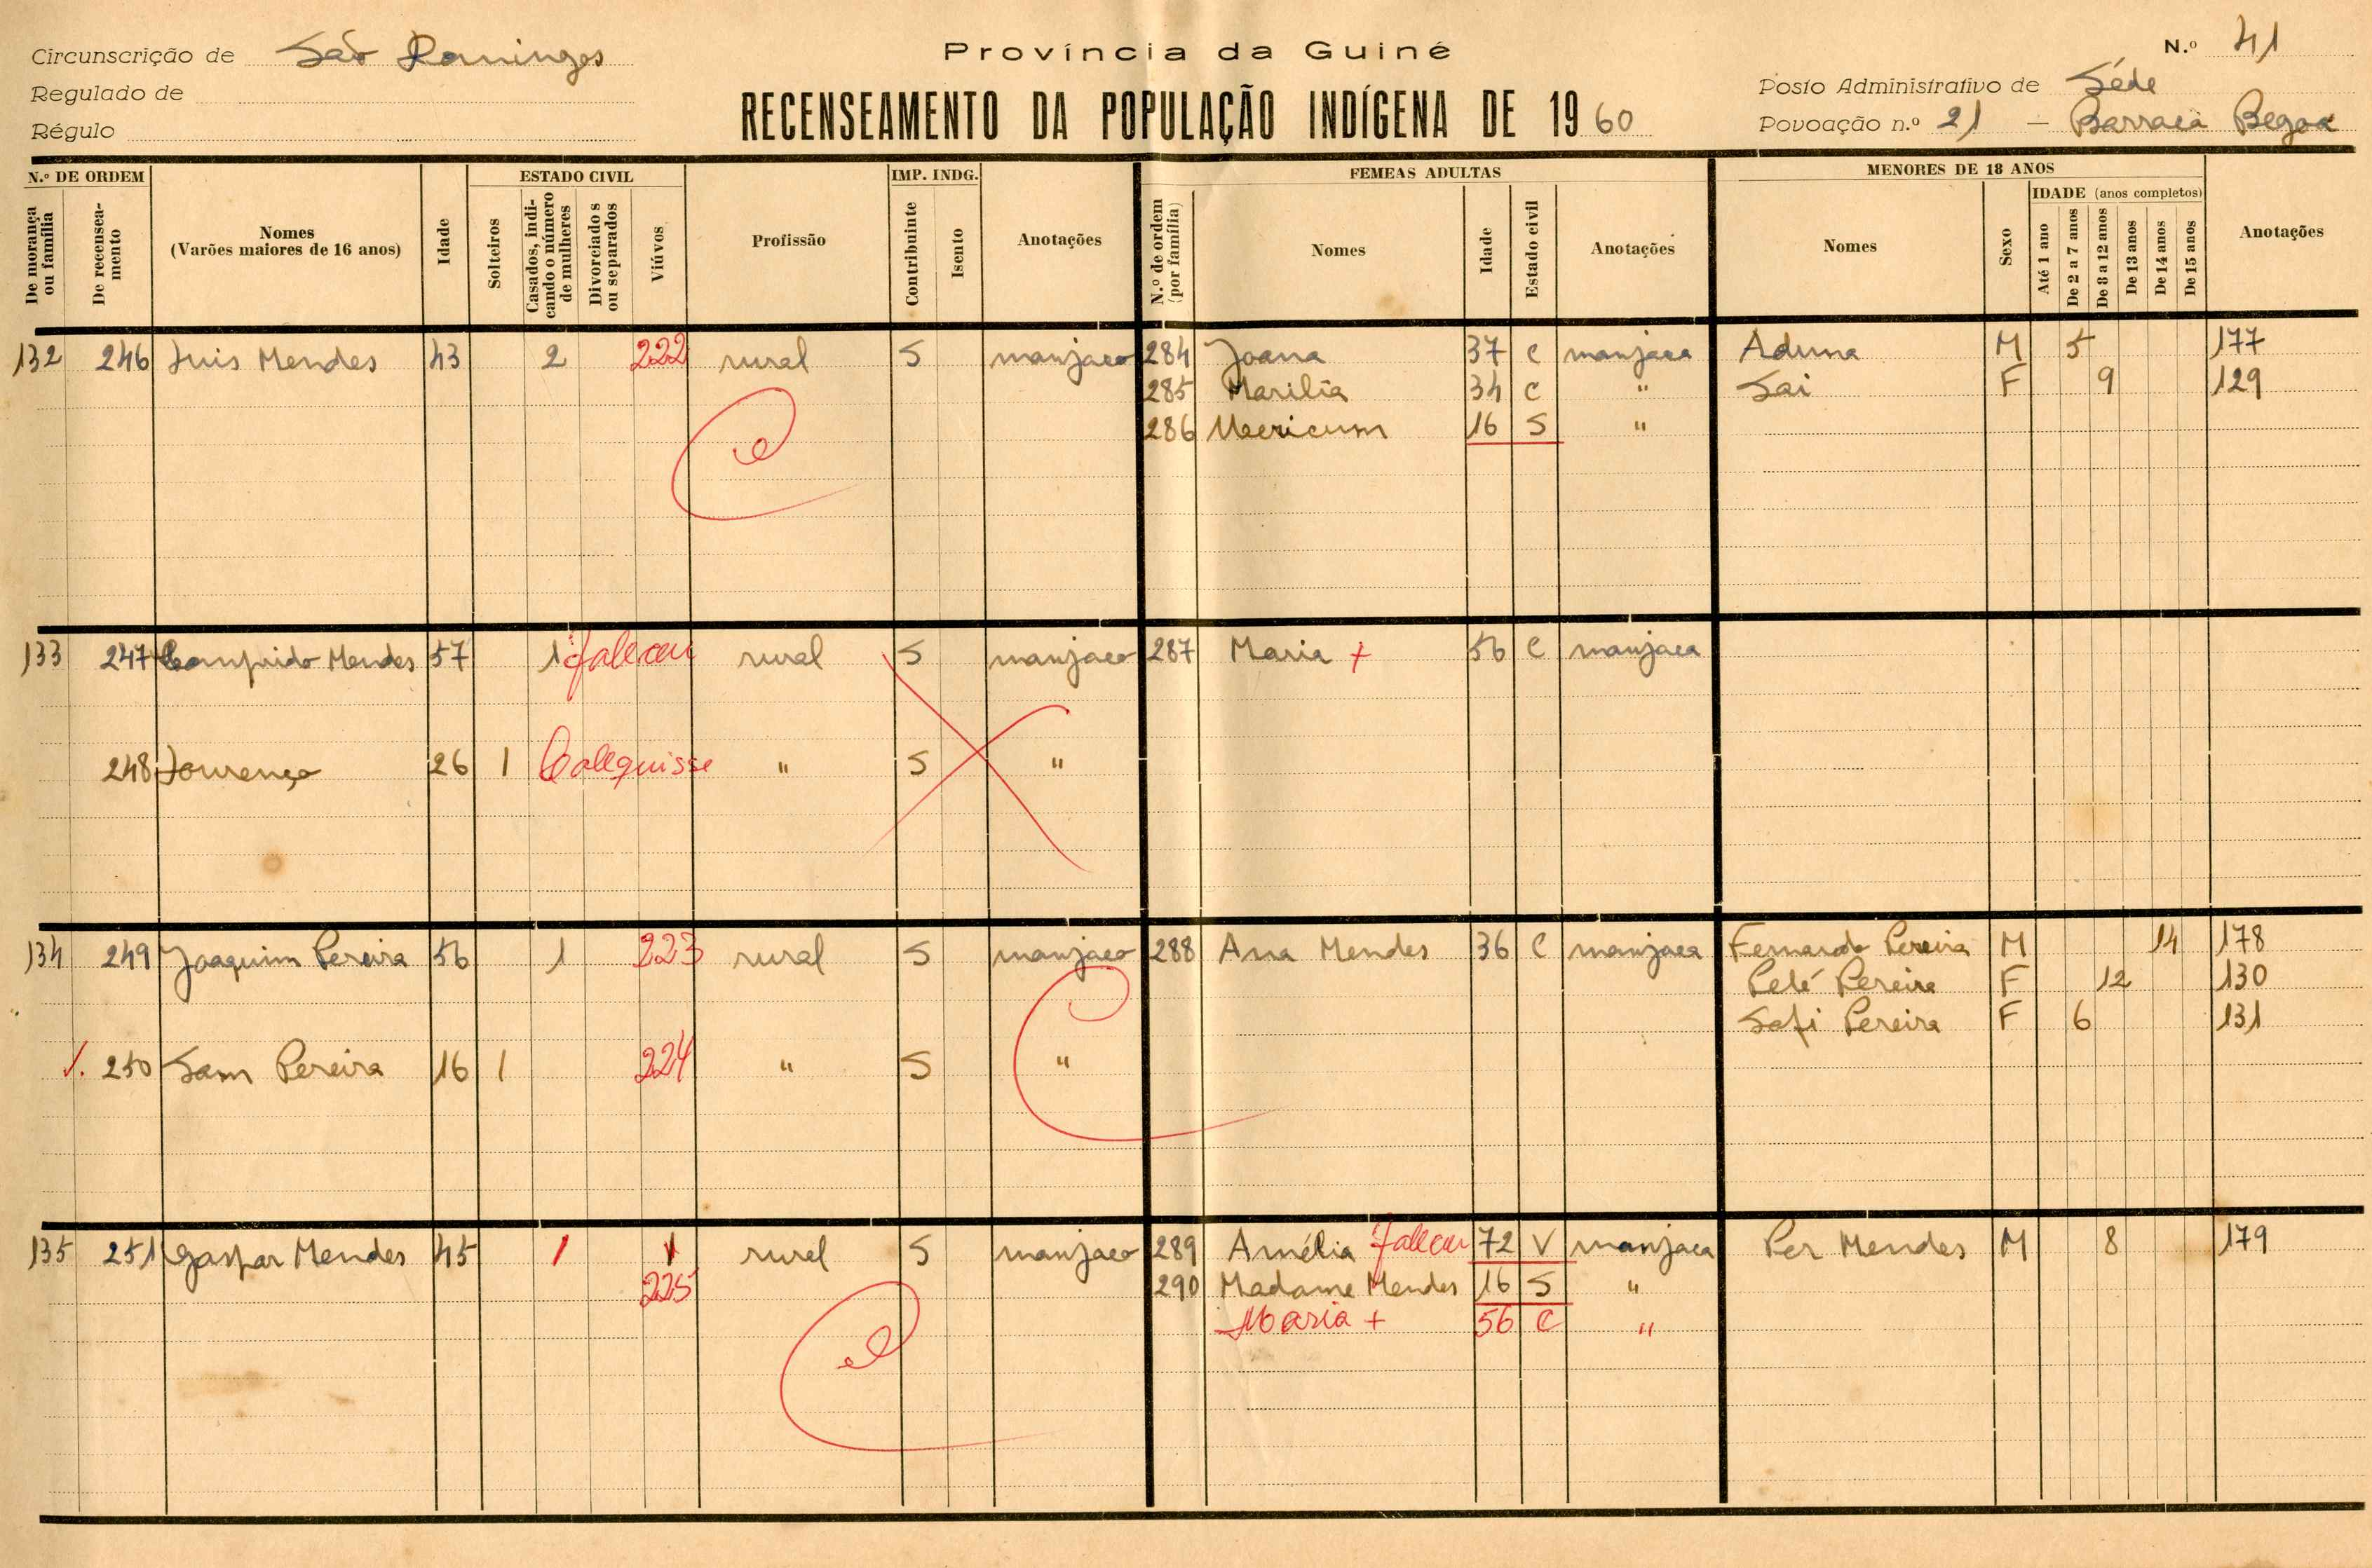 Circunscrição de São Domingos
Regulado de
Régulo
Província da Guiné
RECENSEAMENTO DA POPULAÇÃO INDÍGENA DE 1960
N.º 41
Posto Administrativo de Séde
Povoação n.º 21 — Barraca Begoa
N.º DE ORDEM
De morança ou família
De recenseamento
Nomes
(Varões maiores de 16 anos)
Idade
ESTADO CIVIL
Solteiros
Casados, indicando o número de mulheres
Divorciados ou separados
Viúvos
Profissão
IMP. INDG.
Contribuinte
Isento
Anotações
FEMEAS ADULTAS
N.º de ordem (por família)
Nomes
Idade
Estado civil
Anotações
MENORES DE 18 ANOS
Nomes
Sexo
IDADE (anos completos)
Até 1 ano
De 2 a 7 anos
De 8 a 12 anos
De 13 anos
De 14 anos
De 15 anos
Anotações
132 246 Luis Mendes 43 2 222 rural S manjaco 284 Joana 37 C manjaca Aduna M 5 177
285 Marilia 34 C " Sai F 9 129
286 16 S "
133 247 Comprido Mendes 57 1 faleceu rural S manjaco 287 Maria + 56 C manjaca
248 Lourenço 26 1 Calequisse " S "
134 249 Joaquim Pereira 56 1 223 rural S manjaco 288 Ana Mendes 36 C manjaca Fernando Pereira M 14 178
Peté Pereira F 12 130
Safi Pereira F 6 131
250 Sam Pereira 16 1 224 " S "
135 251 Gaspar Mendes 45 1 1 rural S manjaco 289 Amélia faleceu 72 V manjaca Per Mendes M 8 179
225 290 Madame Mendes 16 S "
Maria + 56 C "